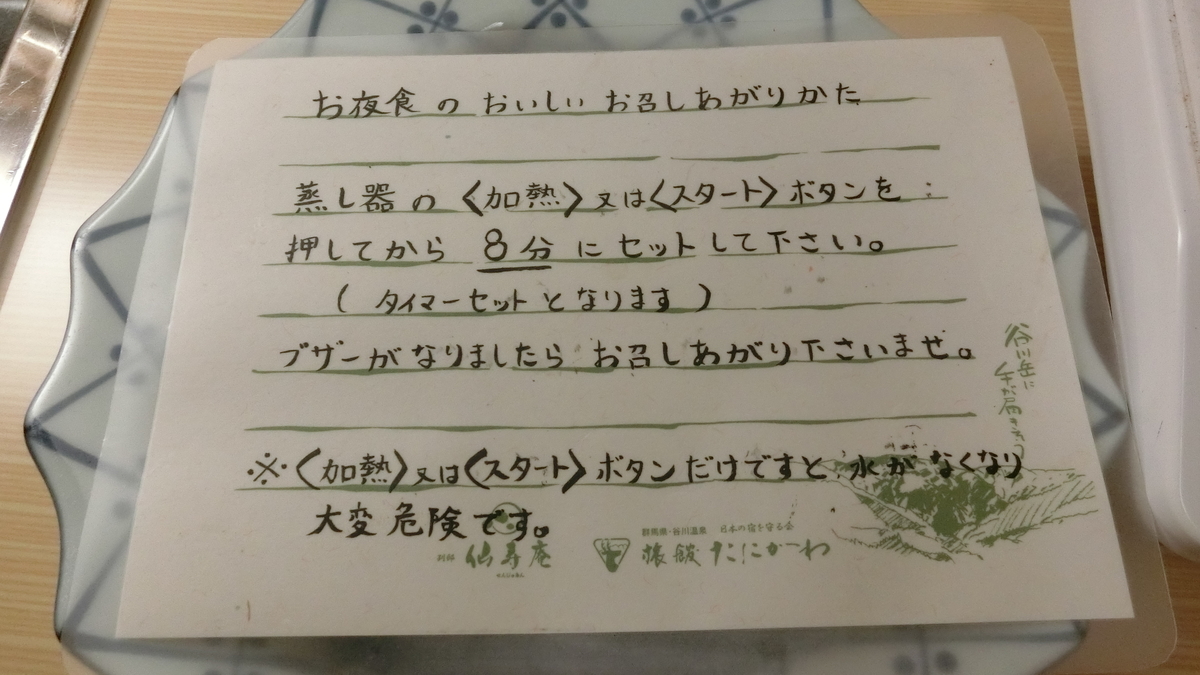 お夜食の おいしい お召しあがりかた
蒸し器の〈加熱〉又は〈スタート〉ボタンを
押してから 8分 にセットして下さい。
( タイマーセットとなります )
ブザーがなりましたら お召しあがり下さいませ。
※〈加熱〉又は〈スタート〉ボタンだけですと 水がなくなり
大変危険です。
谷川岳に
手が届きそう
別邸 仙寿庵
せんじゅあん
群馬県・谷川温泉 日本の宿を守る会
旅館 たにがわ